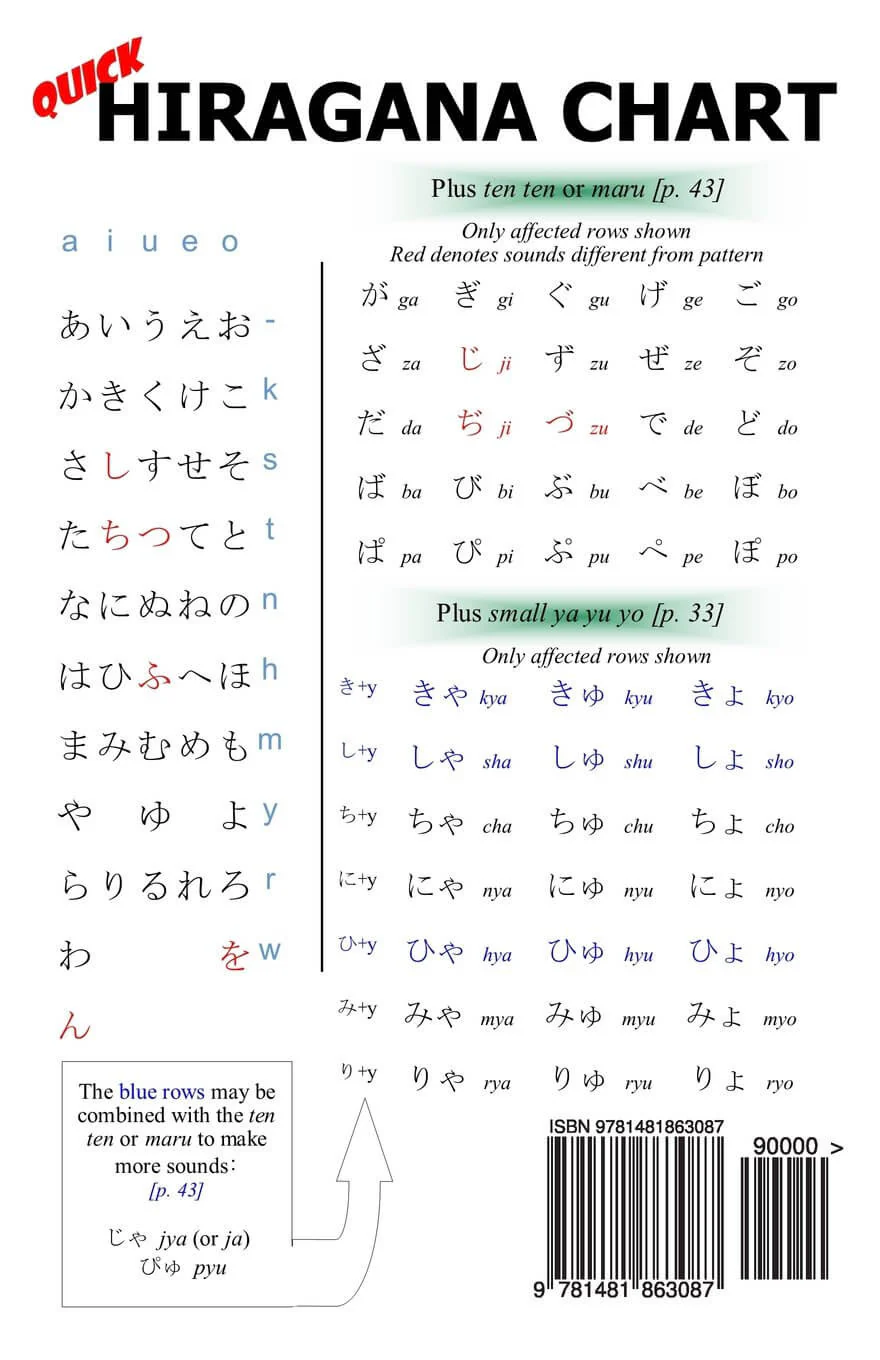 QUICK
HIRAGANA CHART
a i u e o
あ い う え お -
か き く け こ k
さ し す せ そ s
た ち つ て と t
な に ぬ ね の n
は ひ ふ へ ほ h
ま み む め も m
や ゆ よ y
ら り る れ ろ r
わ を w
ん
The blue rows may be
combined with the ten
ten or maru to make
more sounds:
[p. 43]
じゃ jya (or ja)
ぴゅ pyu
Plus ten ten or maru [p. 43]
Only affected rows shown
Red denotes sounds different from pattern
が ga ぎ gi ぐ gu げ ge ご go
ざ za じ ji ず zu ぜ ze ぞ zo
だ da ぢ ji づ zu で de ど do
ば ba び bi ぶ bu べ be ぼ bo
ぱ pa ぴ pi ぷ pu ぺ pe ぽ po
Plus small ya yu yo [p. 33]
Only affected rows shown
き+y きゃ kya きゅ kyu きょ kyo
し+y しゃ sha しゅ shu しょ sho
ち+y ちゃ cha ちゅ chu ちょ cho
に+y にゃ nya にゅ nyu にょ nyo
ひ+y ひゃ hya ひゅ hyu ひょ hyo
み+y みゃ mya みゅ myu みょ myo
り+y りゃ rya りゅ ryu りょ ryo
ISBN 9781481863087
90000 >
9 781481 863087